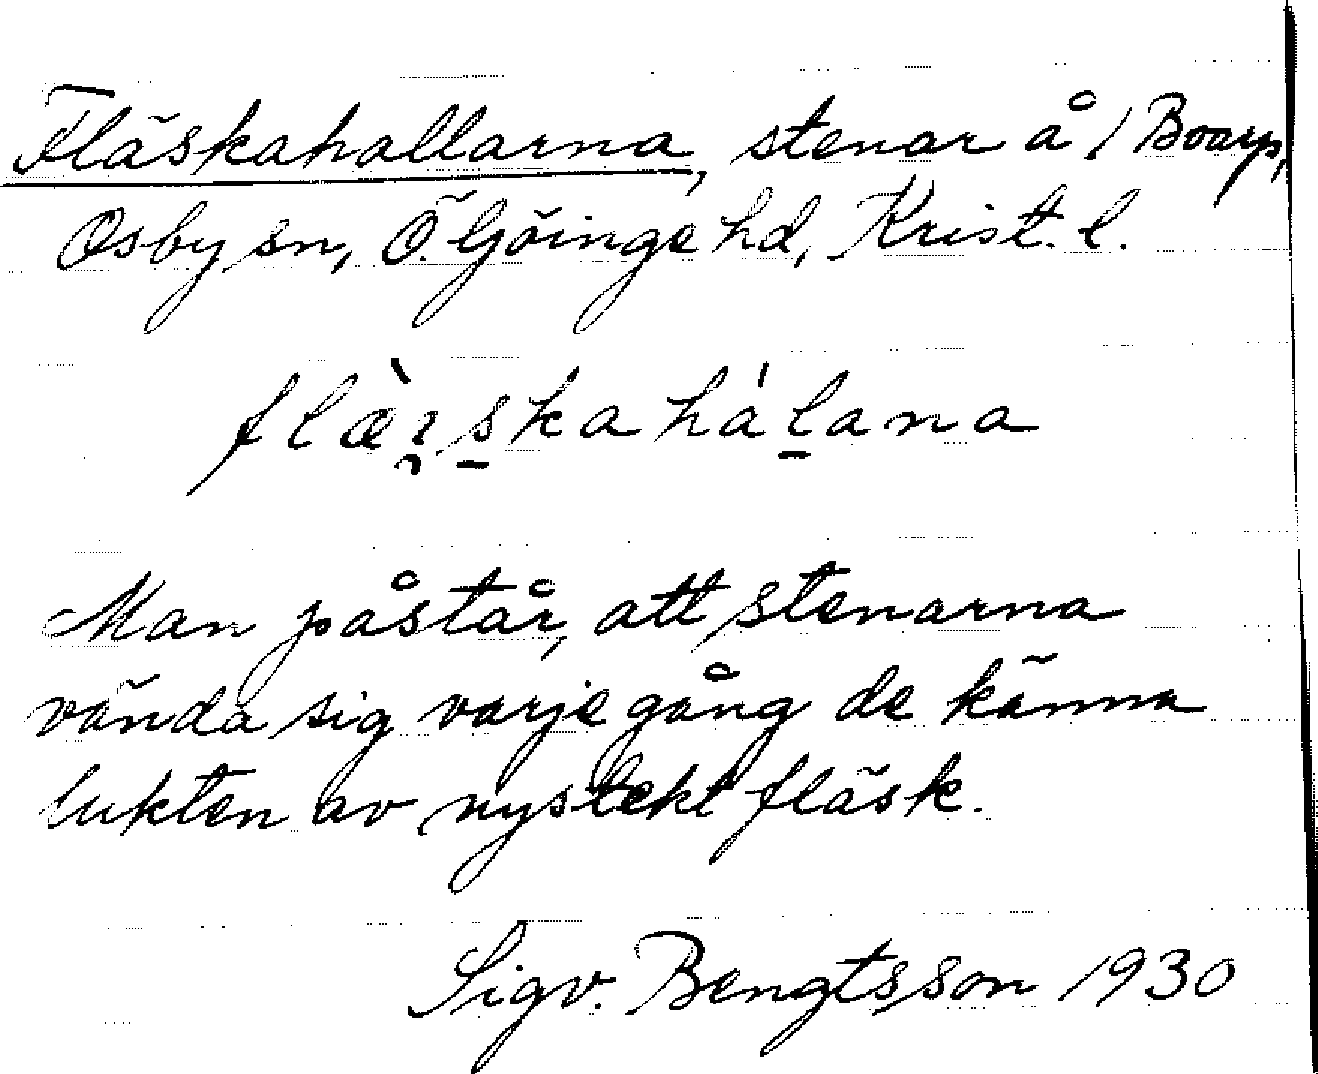 Fläskahallarna, stenar å 1 Boarp,
Osby sn, Ö. Göinge hd, Krist. l.
flæ̀ɪskahálana
Man påstår, att stenarna
vända sig varje gång de känna
lukten av nystekt fläsk.
Sigv. Bengtsson 1930